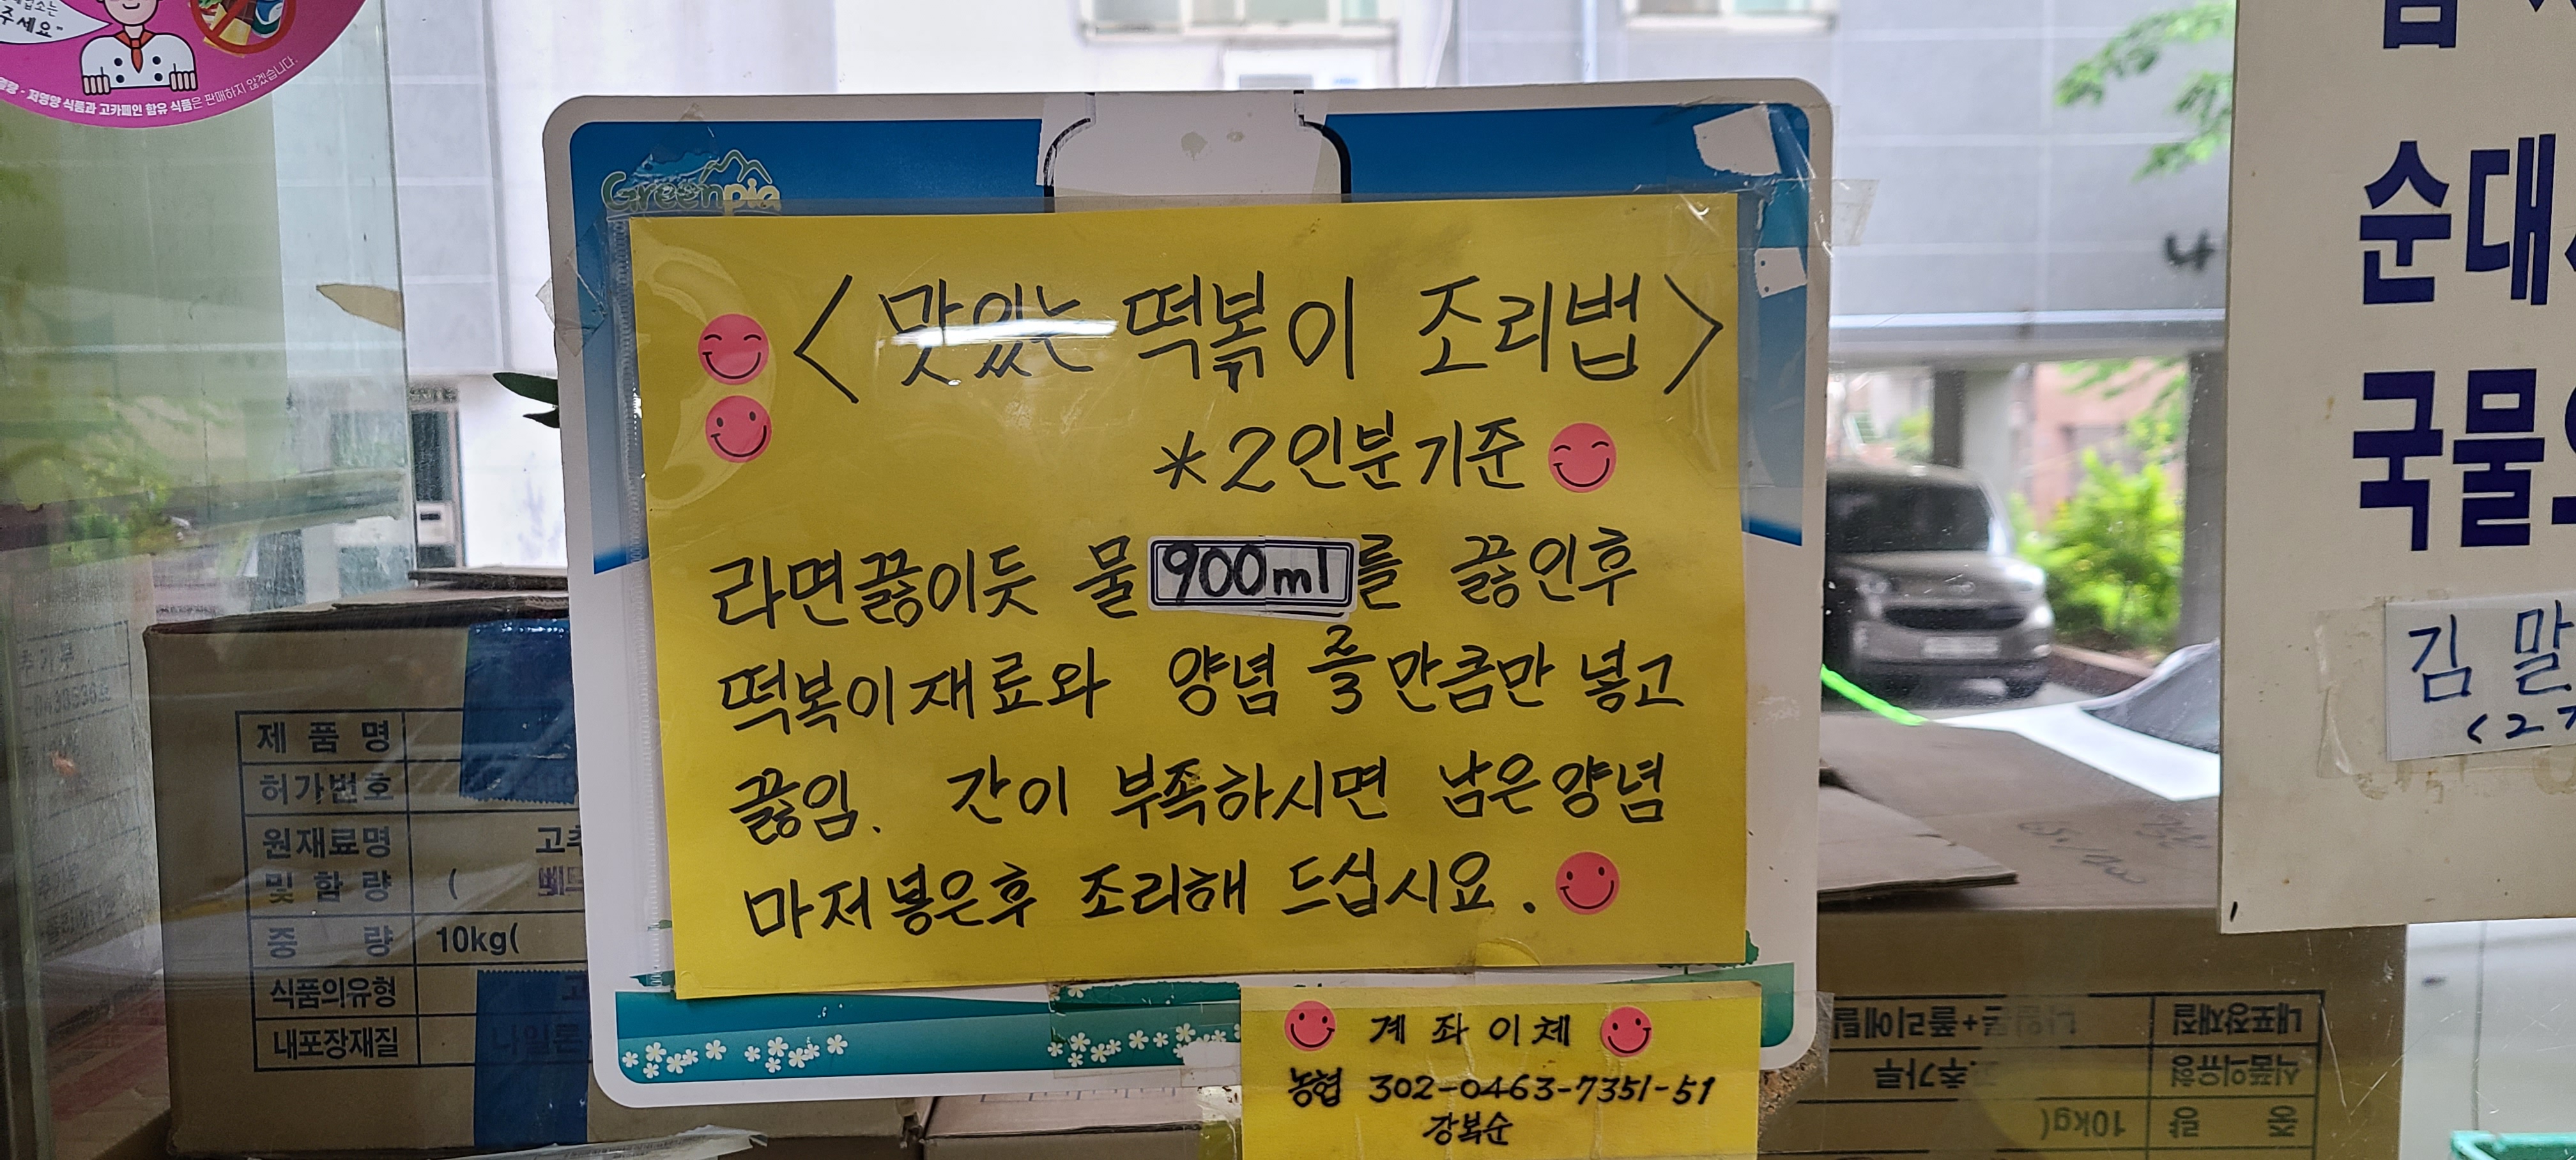 주세요"
저영양 식품과 고카페인 함유 식품은 판매하지 않겠습니다.
Greenpia
<맛있는 떡볶이 조리법>
*2인분기준
라면끓이듯 물 900ml를 끓인후
떡복이재료와 양념 2/3 만큼만 넣고
끓임. 간이 부족하시면 남은양념
마저넣은후 조리해 드십시요.
계좌이체
농협 302-0463-7351-51
강복순
제품명
허가번호
원재료명
및 함량 (
중량 10kg(
식품의유형
내포장재질 나일론
순대
국물
김말
(2
내포장재질
식품의유형 고추가루
중량 10kg(